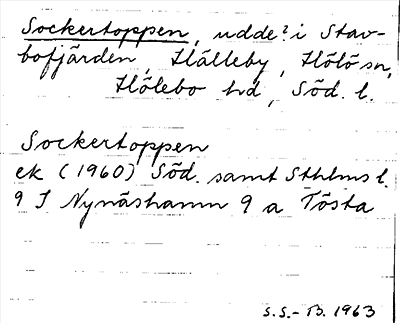 Sockertoppen, udde? i Stav-
bofjärden, Hälleby, Hölö sn,
Hölebo hd, Söd. l.
Sockertoppen
ek (1960) Söd. samt Sthlms l.
9 I Nynäshamn 9 a Tösta
S.S.-B. 1963